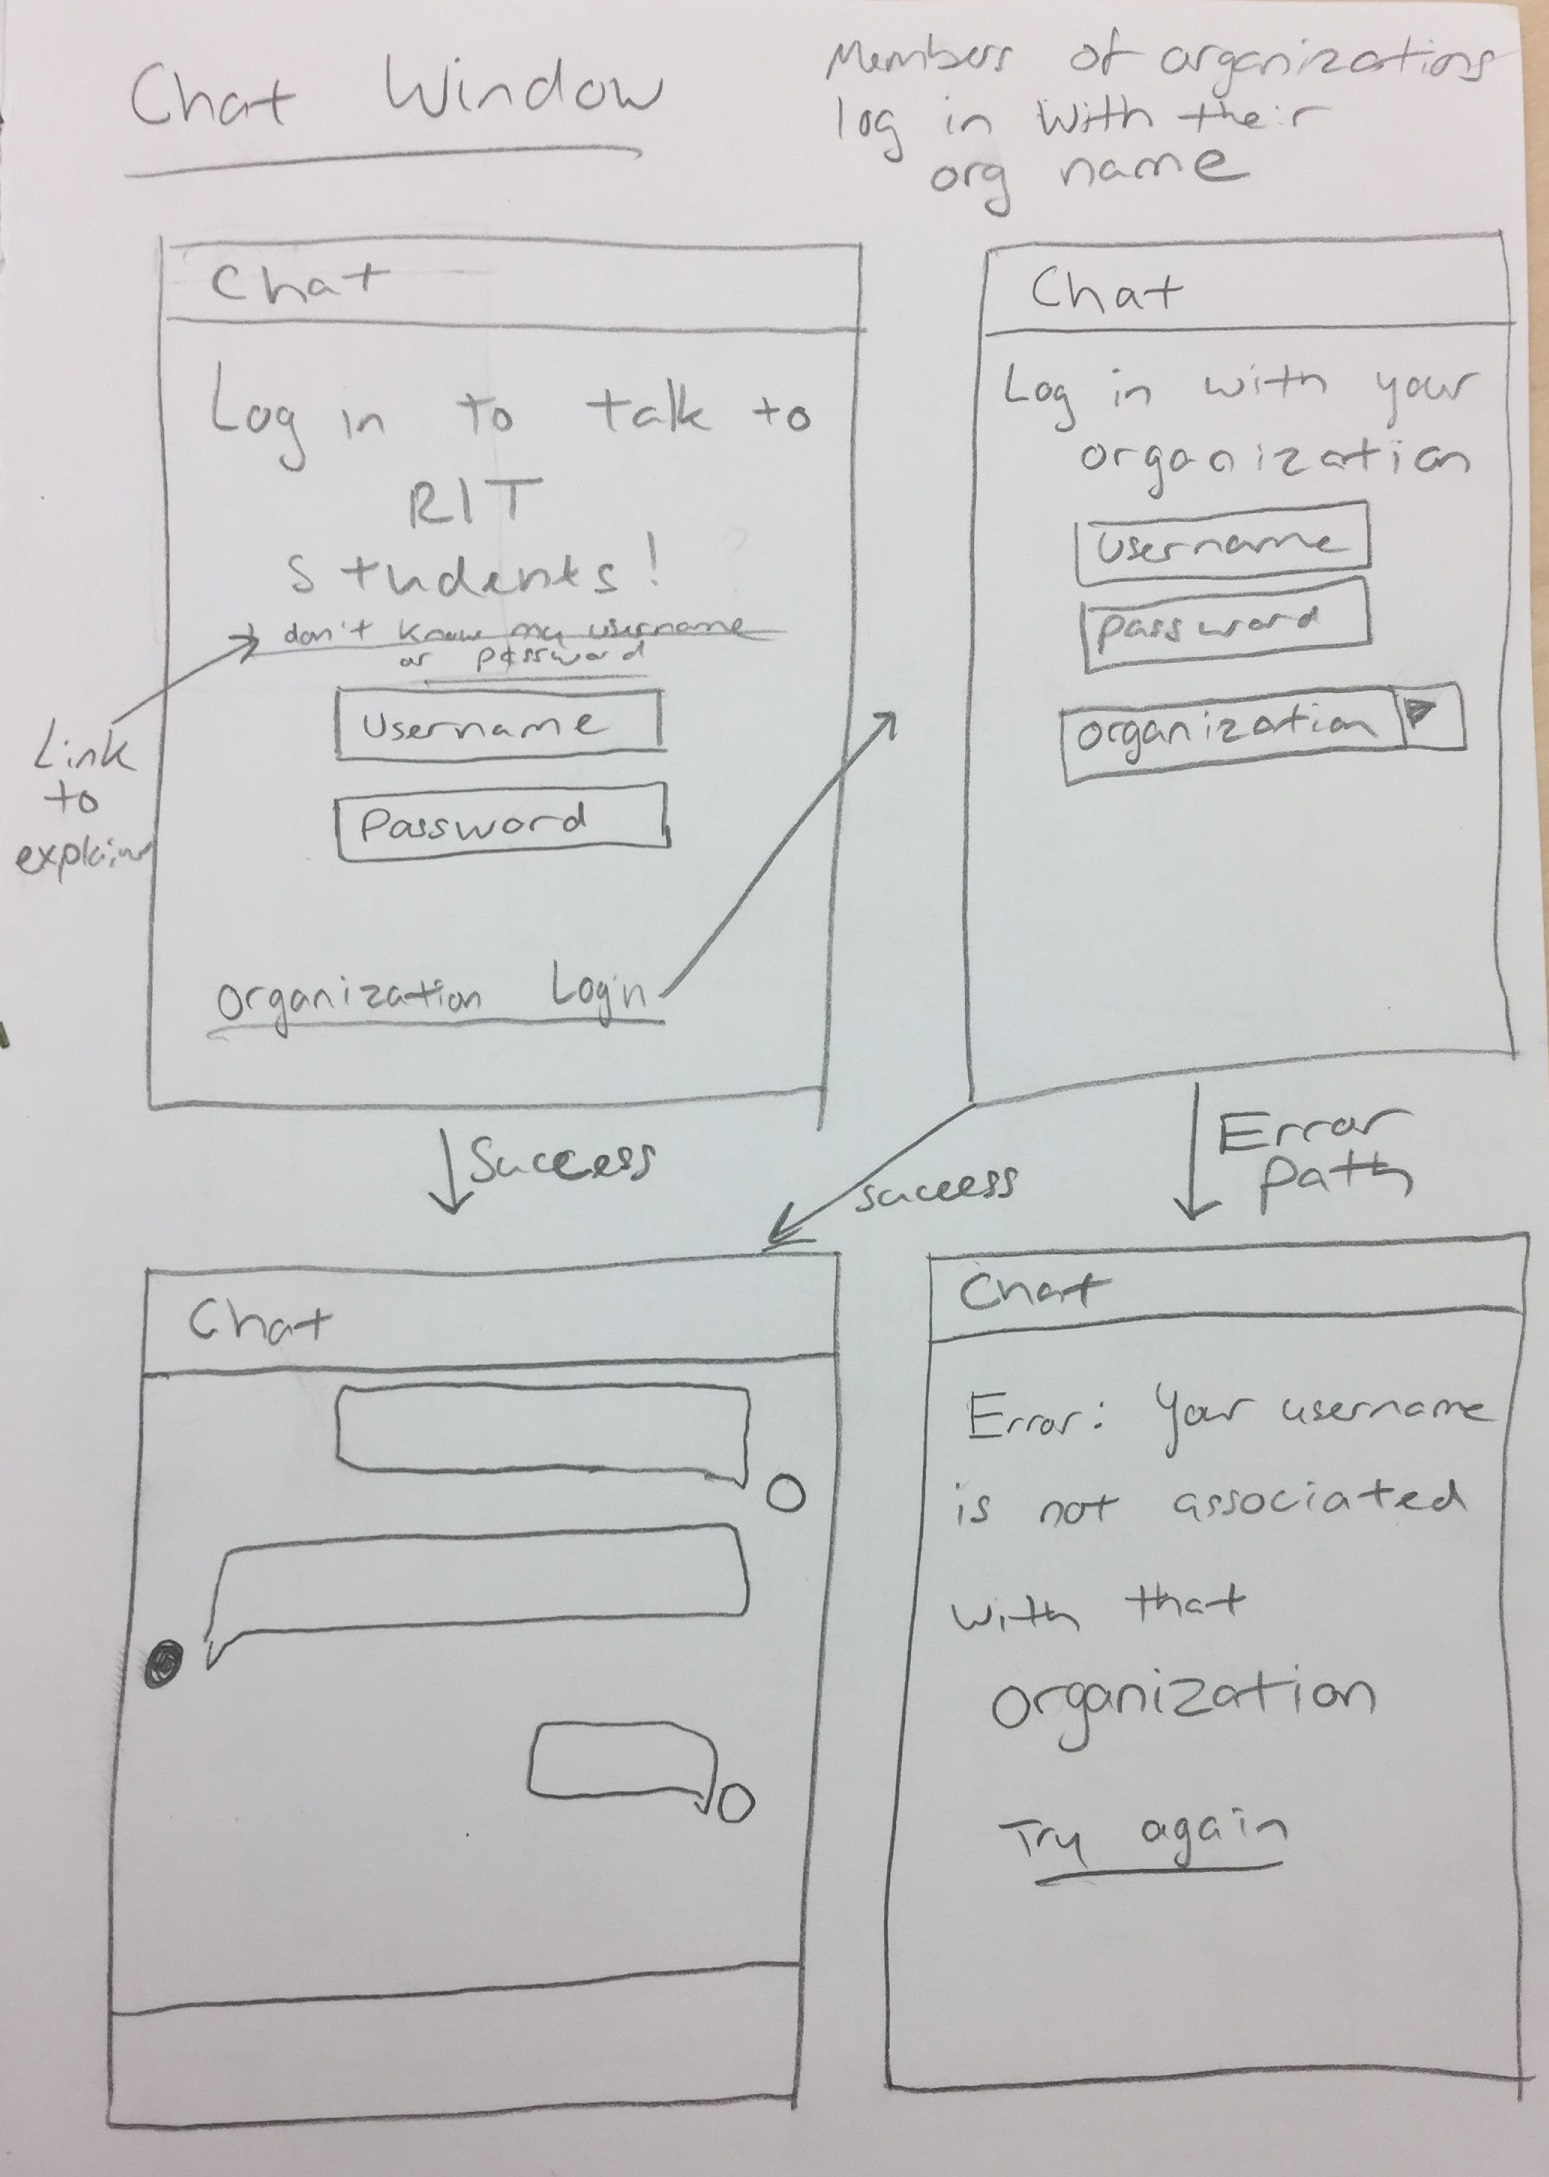 Chat Window
Members of organizations
log in with their
org name
Chat
Log in to talk to
RIT
students!
I don't know my username
or password
Username
Password
Organization Login
Link
to
explain
Chat
Log in with your
organization
Username
password
organization
Success
success
Error
Path
Chat
Chat
Error: Your username
is not associated
with that
organization
Try again